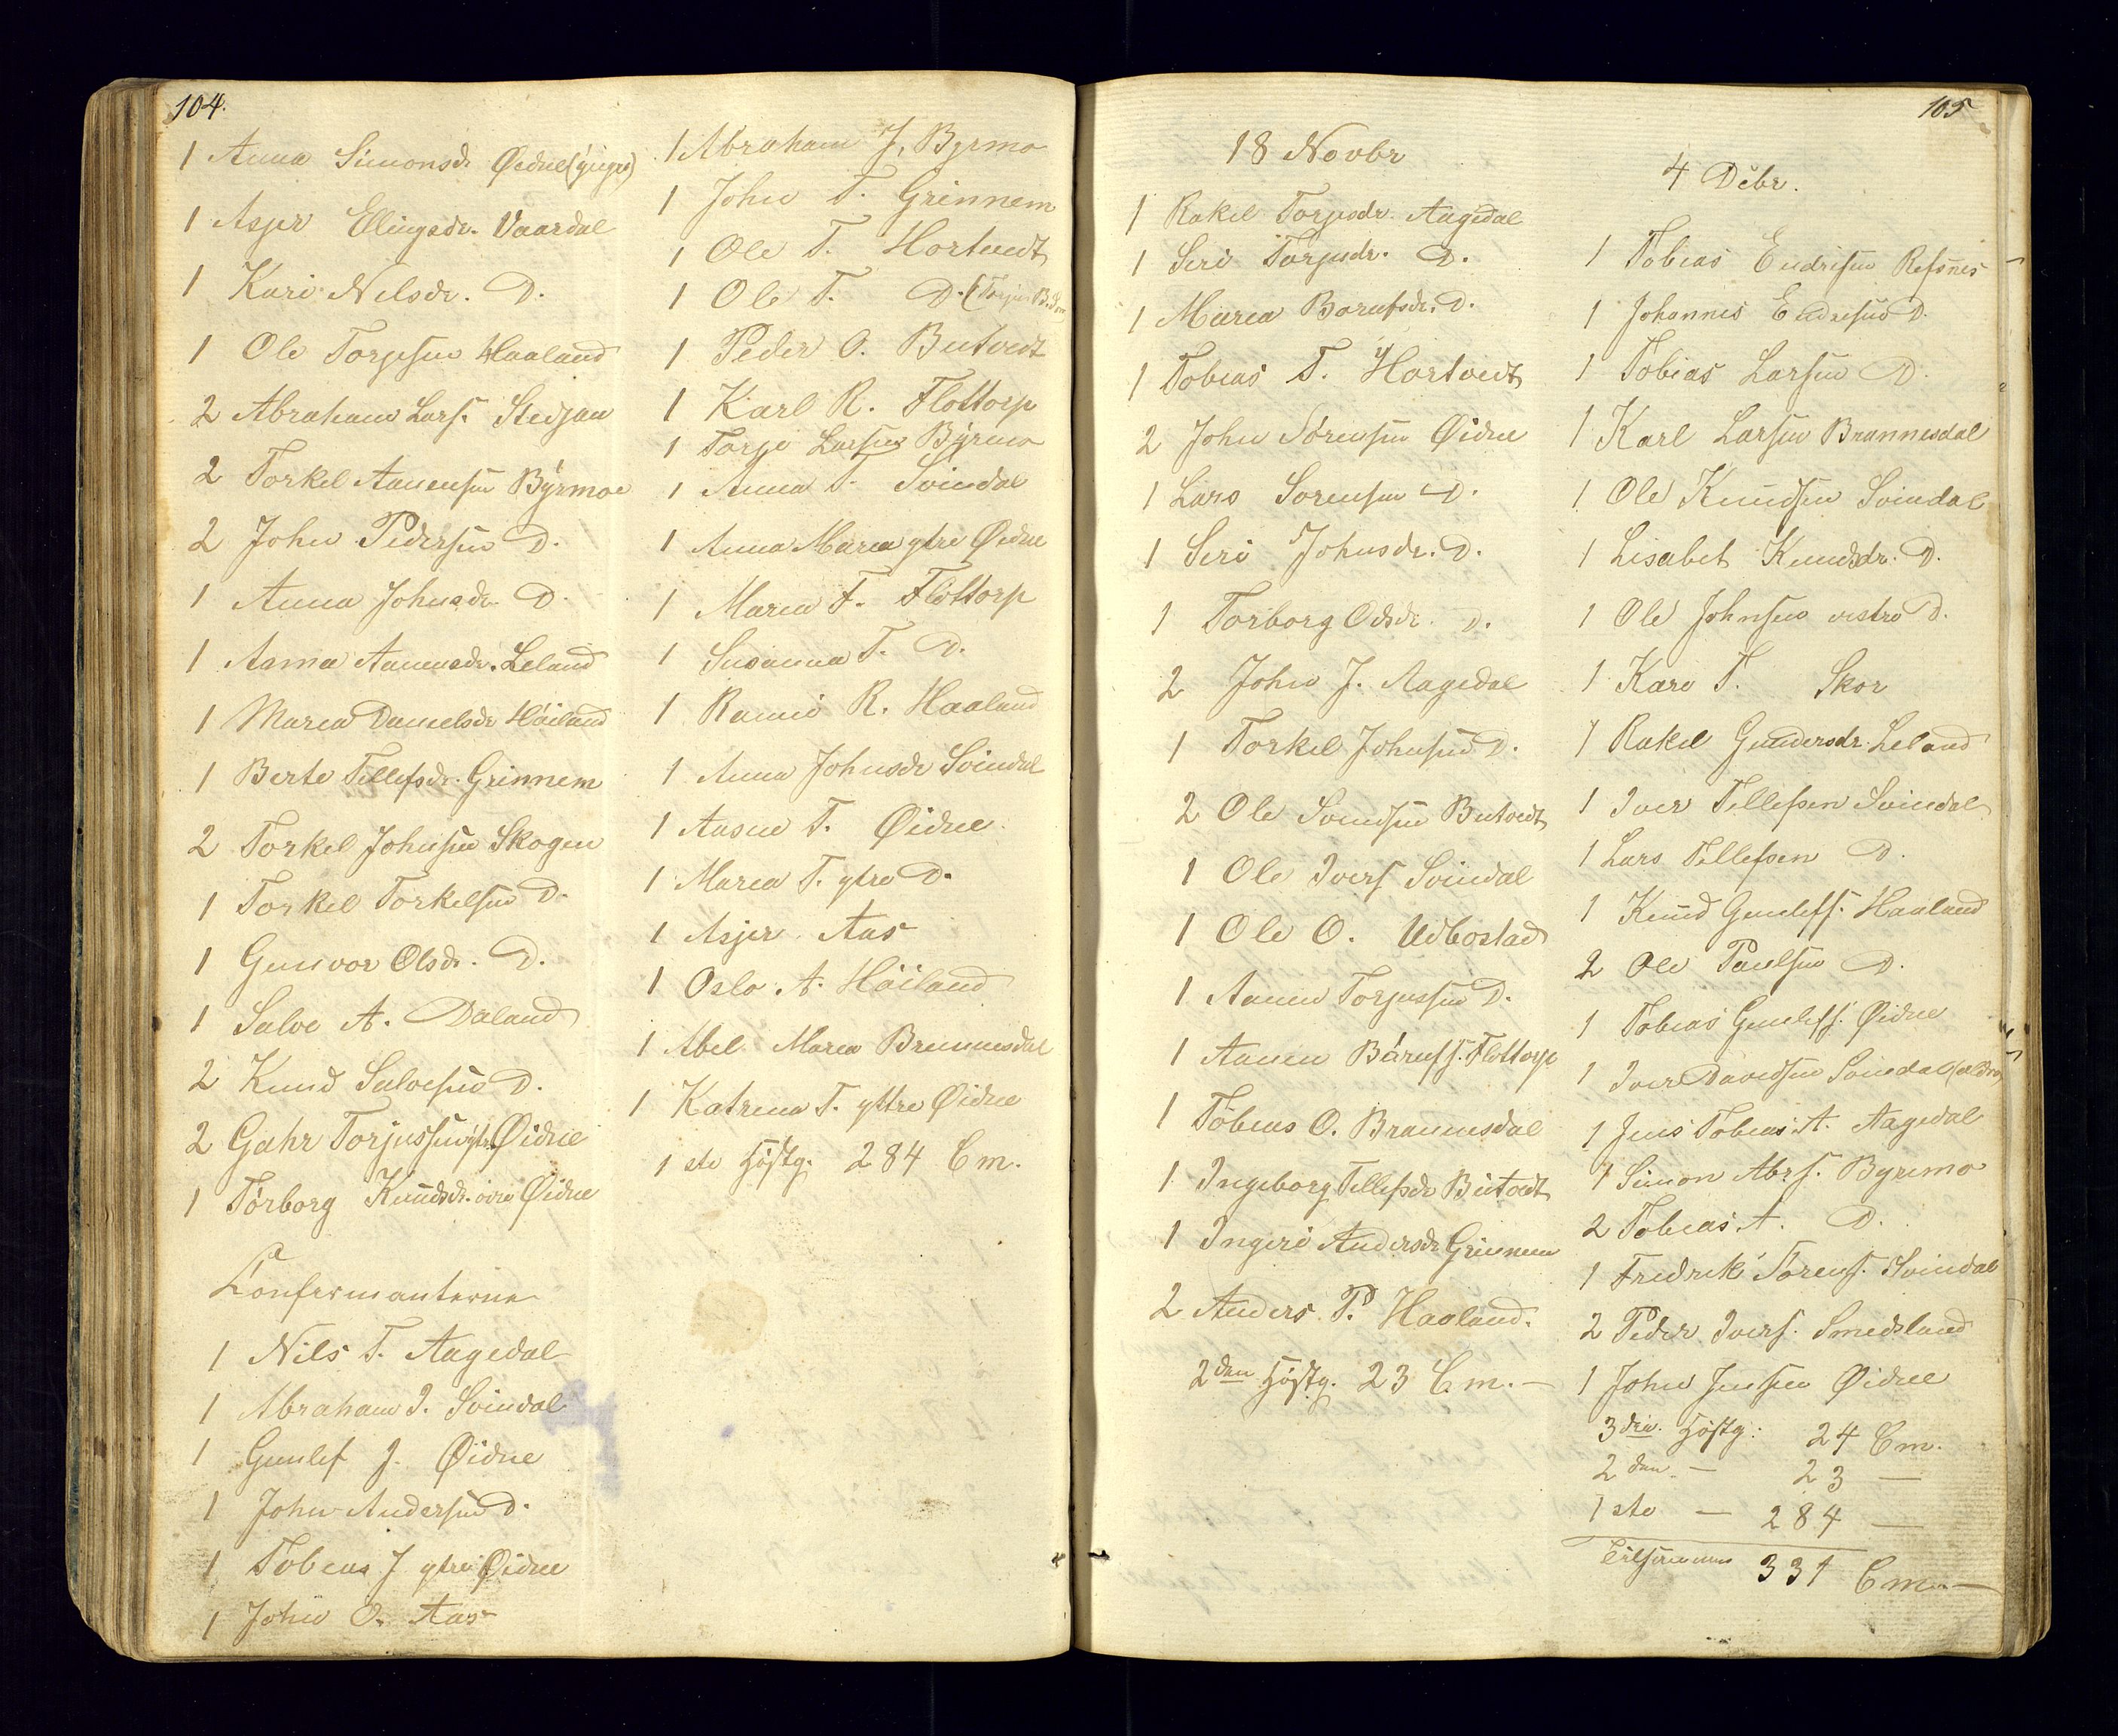 104.
1 Anna Simonsd. Øidne (yngre)
1 Asjer Ellingsdr. Vaardal
1 Kari Nilsdr. D.
1 Ole Torjesen Haaland
2 Abraham Lars. Stedjan
2 Torkel Aanensen Byrmoe
2 John Pedersen D.
1 Anna Johnsdr. D.
1 Asma Aanensdr. Leland
1 Maria Danielsdr Höiland
1 Berte Tellefsdr. Grinnem
2 Torkel Johnsen Skogen
1 Torkel Torkelsen D.
1 Gunvor Olsdr. D.
1 Salve A. Daland
2 Knud Salvesen D.
2 Gahr Torjussen ytr. Øidne
1 Torborg Knudsdr. övre Øidne
Confirmanterne
1 Nils T. Aagedal
1 Abraham I. Svindal
1 Gunlef J. Øidne
1 John Andersen D.
1 Tobias J ytre Øidne
1 John O. Aas
1 Abraham J. Byrmo
1 John T. Grinnem
1 Ole T. Hortvedt
1 Ole T. D. (Torjus B. Søn)
1 Peder O. Butvedt
1 Karl R. Flottorp
1 Torje Larsen Byrmo
1 Anna T. Svindal
1 Anna Maria ytre Øidne
1 Maria T. Flottorp
1 Susanna T. D.
1 Rannei R. Haaland
1 Anna Johnsdr Svindal
1 Aasne T. Øidne
1 Maria T. ytre D.
1 Asjer Aas
1 Oslo A. Höiland
1 Abel Maria Brunnesdal
1 Katrina T. yttre Øidne
1 ste Höstg. 284 Cm.
105
18 Novbr
1 Rakel Torjesdr. Aagedal
1 Siri Torjusdr. D.
1 Maria Borufsdr. D.
1 Tobias T. Hortvedt
2 John Sörensen Øidne
1 Lars Sorensen D.
1 Siri Johnsdr. D.
1 Torborg Odsdr. D.
2 John J. Aagedal
1 Torkel Johnsen D.
2 Ole Svendsen Butvedt
1 Ole Ivers Svindal
1 Ole O. Udbostad
1 Aanen Torjussen D.
1 Aanen Bárufs. Flottorp
1 Tobias O. Braunesdal
1 Ingeborg Tellefsdr Butvedt
1 Ingeri Andersdr Grinnem
2 Anders P. Haaland.
2den Höstg. 23 Cm. —
4 Decbr.
1 Tobias Endresen Refsnes
1 Johannes Endresen D.
1 Tobias Larsen D.
1 Karl Larsen Brunnesdal
1 Ole Knudsen Svindal
1 Lisabet Knudsdr. D.
1 Ole Johnsen vestre D.
1 Kare T. Skor
1 Rakel Gundersdr. Leland
1 Iver Tellefsen Svindal
1 Lars Tellefsen D.
1 Knud Gunlefs. Haaland
2 Ole Paulsen D.
1 Tobias Gunlefs. Øidne
1 Iver Davidsen Svindal (ældre)
1 Jens Tobias A. Aagedal
1 Simon Abrs. Byrmo
2 Tobias A. D.
1 Fredrik Sörens. Svindal
2 Peder Ivers. Smedsland
1 John Jensen Øidne
3die Höstg: 24 Cm.
2den — 23 —
1 ste — 284 —
Tilsammen 331 Cm. —